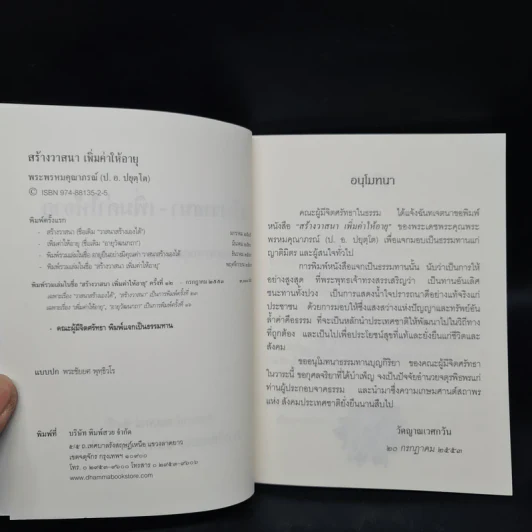 สร้างวาสนา เพิ่มค่าให้อายุ
พระพรหมคุณาภรณ์ (ป. อ. ปยุตฺโต)
© ISBN 974-88135-2-5
พิมพ์ครั้งแรก
- สร้างวาสนา (ชื่อเดิม "วาสนาสร้างเองได้")
- เพิ่มค่าให้อายุ (ชื่อเดิม "อายุวัฒนกถา")
- พิมพ์รวมเล่มในชื่อ
- พิมพ์รวมเล่มในชื่อ "สร้างวาสนา เพิ่มค่าให้อายุ"
พิมพ์รวมเล่มในชื่อ "สร้างวาสนา เพิ่มค่าให้อายุ" ครั้งที่ ๑๒ - กรกฎาคม ๒๕๕๓
- คณะผู้มีจิตศรัทธา พิมพ์แจกเป็นธรรมทาน
แบบปก พระชัยยศ พุทฺธิวโร
พิมพ์ที่ บริษัท พิมพ์สวย จำกัด
๕/๕ ถ.เทศบาลรังสฤษฎ์เหนือ แขวงลาดยาว
เขตจตุจักร กรุงเทพฯ ๑๐๙๐๐
www.dhammabookstore.com
อนุโมทนา
คณะผู้มีจิตศรัทธาในธรรม ได้แจ้งฉันทเจตนาขอพิมพ์
หนังสือ "สร้างวาสนา เพิ่มค่าให้อายุ" ของพระเดชพระคุณพระ
พรหมคุณาภรณ์ (ป. อ. ปยุตฺโต) เพื่อแจกมอบเป็นธรรมทานแก่
ญาติมิตร และผู้สนใจทั่วไป
การพิมพ์หนังสือแจกเป็นธรรมทานนั้น นับว่าเป็นการให้
อย่างสูงสุด ที่พระพุทธเจ้าทรงสรรเสริญว่า เป็นทานอันเลิศ
ชนะทานทั้งปวง เป็นการแสดงน้ำใจปรารถนาดีอย่างแท้จริงแก่
ประชาชน ด้วยการมอบให้ซึ่งแสงสว่างแห่งปัญญาและทรัพย์อัน
ล้ำค่าคือธรรม ที่จะเป็นหลักนำประเทศชาติให้พัฒนาไปในวิถีทาง
ที่ถูกต้อง และเป็นไปเพื่อประโยชน์สุขที่แท้และยั่งยืนแก่ชีวิตและ
สังคม
ขออนุโมทนาธรรมทานบุญกิริยา ของคณะผู้มีจิตศรัทธา
ในวาระนี้ ขอกุศลจริยาที่ได้บำเพ็ญ จงเป็นปัจจัยอำนวยจตุรพิธพรแก่
ท่านผู้ประกอบจาคธรรม และนำมาซึ่งความเกษมศานต์สถาพร
แห่ง สังคมประเทศชาติยั่งยืนนานสืบไป
วัดญาณเวศกวัน
๒๐ กรกฎาคม ๒๕๕๓